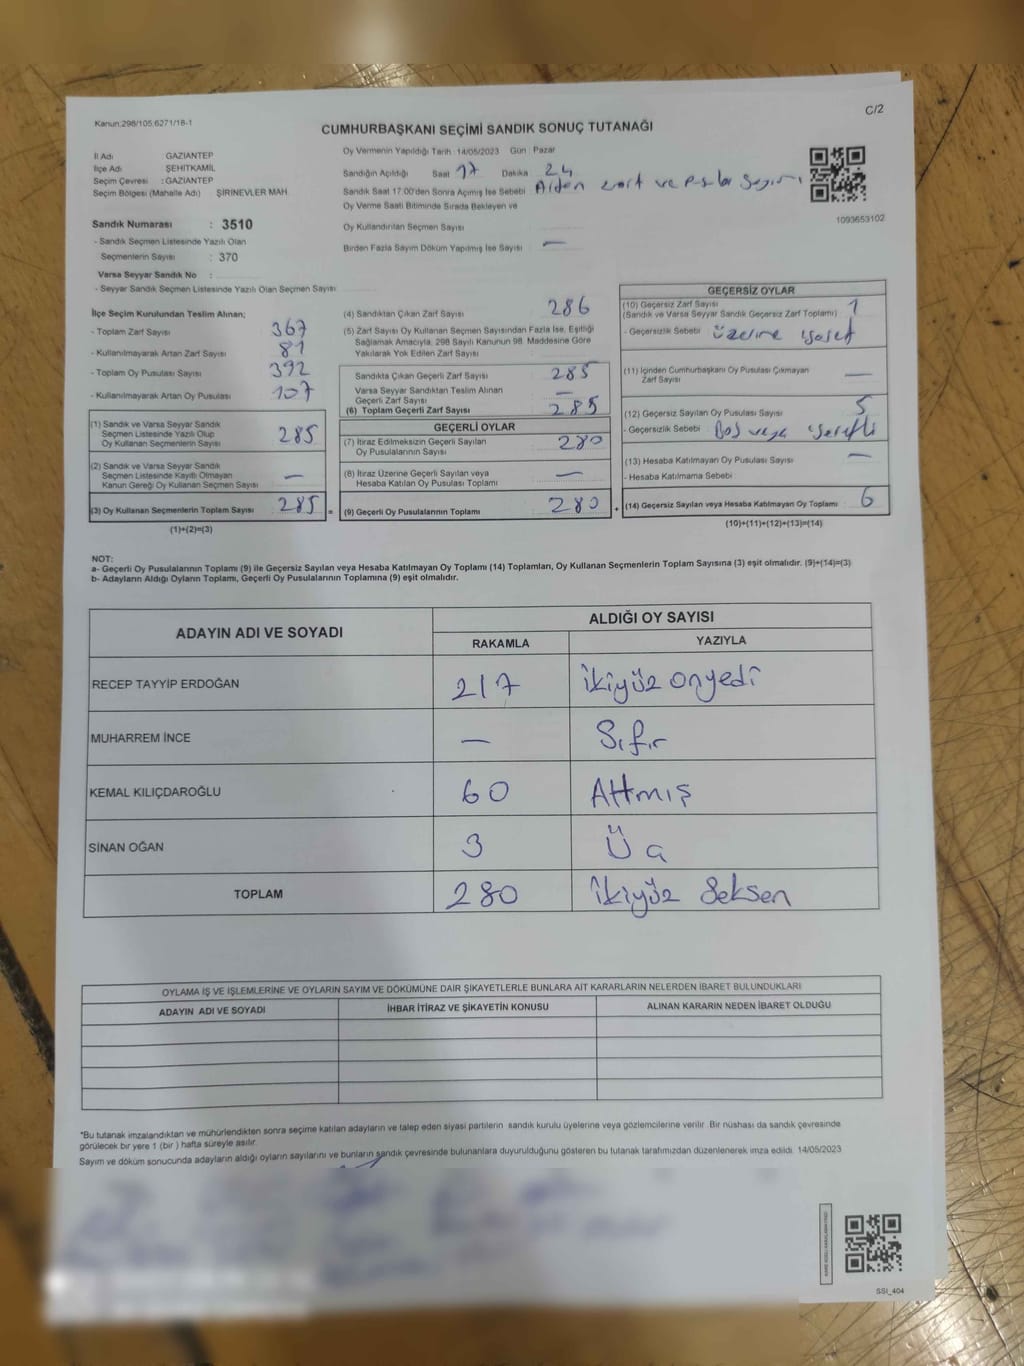 Kanun:298/105,6271/18-1
C/2
CUMHURBAŞKANI SEÇİMİ SANDIK SONUÇ TUTANAĞI
İl Adı GAZİANTEP
İlçe Adı : ŞEHİTKAMİL
Seçim Çevresi : GAZİANTEP
Seçim Bölgesi (Mahalle Adı) ŞİRİNEVLER MAH.
Sandık Numarası : 3510
- Sandık Seçmen Listesinde Yazılı Olan
Seçmenlerin Sayısı : 370
Varsa Seyyar Sandık No :
- Seyyar Sandık Seçmen Listesinde Yazılı Olan Seçmen Sayısı
Oy Vermenin Yapıldığı Tarih : 14/05/2023 Gün : Pazar
Sandığın Açıldığı Saat 17 Dakika 24
Sandık Saat 17:00'den Sonra Açılmış İse Sebebi
Oy Verme Saati Bitiminde Sırada Bekleyen ve
Oy Kullandırılan Seçmen Sayısı
Birden Fazla Sayım Döküm Yapılmış İse Sayısı : —
1093653102
İlçe Seçim Kurulundan Teslim Alınan;
- Toplam Zarf Sayısı 367
- Kullanılmayarak Artan Zarf Sayısı 81
- Toplam Oy Pusulası Sayısı 392
- Kullanılmayarak Artan Oy Pusulası 107
(1) Sandık ve Varsa Seyyar Sandık
Seçmen Listesinde Yazılı Olup
Oy Kullanan Seçmenlerin Sayısı 285
(2) Sandık ve Varsa Seyyar Sandık
Seçmen Listesinde Kayıtlı Olmayan
Kanun Gereği Oy Kullanan Seçmen Sayısı —
(3) Oy Kullanan Seçmenlerin Toplam Sayısı 285 =
(1)+(2)=(3)
(4) Sandıktan Çıkan Zarf Sayısı 286
(5) Zarf Sayısı Oy Kullanan Seçmen Sayısından Fazla İse, Eşitliği
Sağlamak Amacıyla, 298 Sayılı Kanunun 98. Maddesine Göre
Yakılarak Yok Edilen Zarf Sayısı
Sandıkta Çıkan Geçerli Zarf Sayısı 285
Varsa Seyyar Sandıktan Teslim Alınan
Geçerli Zarf Sayısı —
(6) Toplam Geçerli Zarf Sayısı 285
GEÇERLİ OYLAR
(7) İtiraz Edilmeksizin Geçerli Sayılan
Oy Pusulalarının Sayısı 280
(8) İtiraz Üzerine Geçerli Sayılan veya
Hesaba Katılan Oy Pusulası Toplamı —
(9) Geçerli Oy Pusulalarının Toplamı 280 +
GEÇERSİZ OYLAR
(10) Geçersiz Zarf Sayısı 1
(Sandık ve Varsa Seyyar Sandık Geçersiz Zarf Toplamı)
- Geçersizlik Sebebi üzerine işaret
(11) İçinden Cumhurbaşkanı Oy Pusulası Çıkmayan
Zarf Sayısı —
(12) Geçersiz Sayılan Oy Pusulası Sayısı 5
- Geçersizlik Sebebi Boş veya işaretli
(13) Hesaba Katılmayan Oy Pusulası Sayısı —
- Hesaba Katılmama Sebebi
(14) Geçersiz Sayılan veya Hesaba Katılmayan Oy Toplamı 6
(10)+(11)+(12)+(13)=(14)
NOT:
a- Geçerli Oy Pusulalarının Toplamı (9) ile Geçersiz Sayılan veya Hesaba Katılmayan Oy Toplamı (14) Toplamları, Oy Kullanan Seçmenlerin Toplam Sayısına (3) eşit olmalıdır. (9)+(14)=(3)
b- Adayların Aldığı Oyların Toplamı, Geçerli Oy Pusulalarının Toplamına (9) eşit olmalıdır.
ADAYIN ADI VE SOYADI ALDIĞI OY SAYISI
RAKAMLA YAZIYLA
RECEP TAYYİP ERDOĞAN 217 İkiyüz onyedi
MUHARREM İNCE — Sıfır
KEMAL KILIÇDAROĞLU 60 Altmış
SİNAN OĞAN 3 Üç
TOPLAM 280 İkiyüz Seksen
OYLAMA İŞ VE İŞLEMLERİNE VE OYLARIN SAYIM VE DÖKÜMÜNE DAİR ŞİKAYETLERLE BUNLARA AİT KARARLARIN NELERDEN İBARET BULUNDUKLARI
ADAYIN ADI VE SOYADI İHBAR İTİRAZ VE ŞİKAYETİN KONUSU ALINAN KARARIN NEDEN İBARET OLDUĞU
*Bu tutanak imzalandıktan ve mühürlendikten sonra seçime katılan adayların ve talep eden siyasi partilerin sandık kurulu üyelerine veya gözlemcilerine verilir. Bir nüshası da sandık çevresinde
görülecek bir yere 1 (bir ) hafta süreyle asılır.
Sayım ve döküm sonucunda adayların aldığı oyların sayılarını ve bunların sandık çevresinde bulunanlara duyurulduğunu gösteren bu tutanak tarafımızdan düzenlenerek imza edildi. 14/05/2023
SSI_404